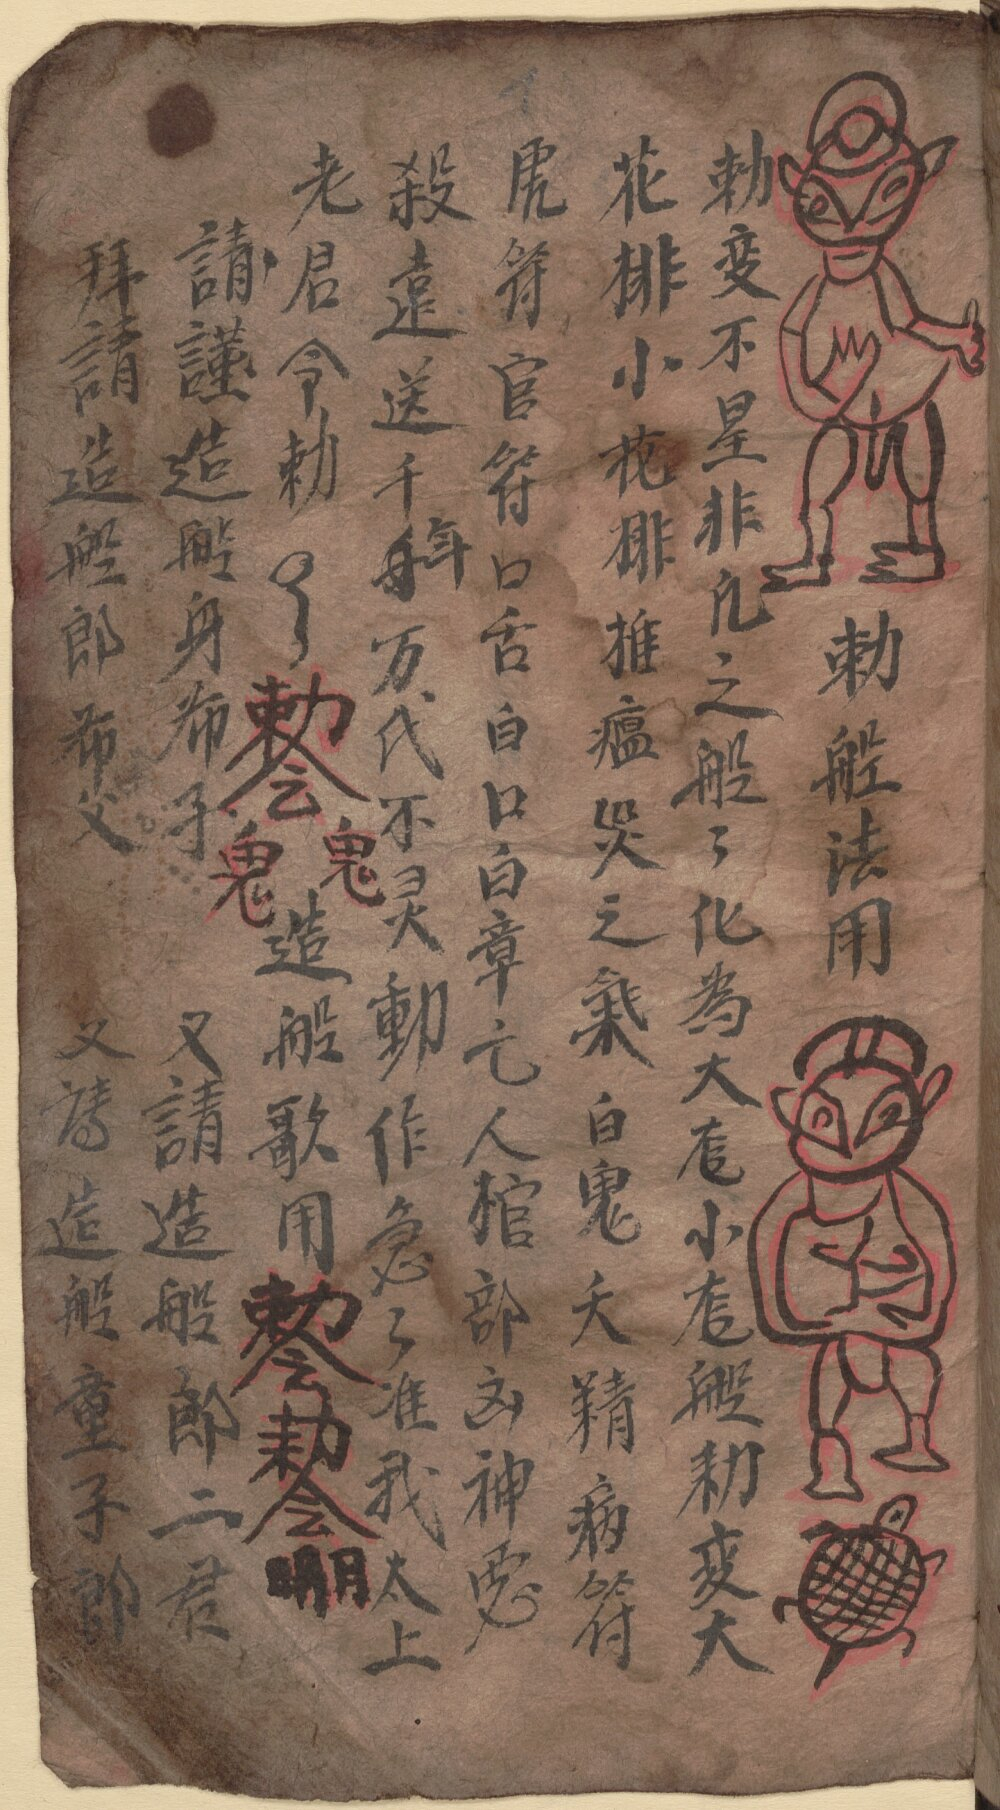 勅船法用
勅变不星非凡之船々化為大庖小庖船勅变大
花排小花排推瘟災之氣白鬼夭精病符
虎符官符口舌白口白章亡人棺部凶神惡
殺遠送千年万代不灵動作急々准我太上
老君令勅
勅令鬼鬼
造船歌用
勅令勅令明月
請謹造船身布子 又請造船郎二君
拜請造船郎布父 又請造船童子郎